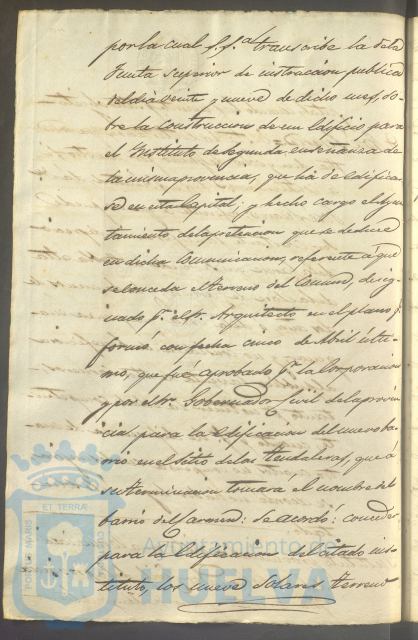 por la cual S.Sª transcribe la de la
Junta superior de instrucción publica
del dia veinte y nueve de dicho mes, so-
bre la construccion de un Edificio para
el Instituto de segunda enseñanza de
la misma provincia, que ha de edificar-
se en esta Capital; y hecho cargo el Ayun-
tamiento de la pretencion que se deduce
en dicha Comunicacion, referente á que
se le conceda el terreno del Comun, desig-
nado pr. el Sr. Arquitecto en el plano q.
formó con fecha cinco de Abril últi-
mo, que fué aprobado pr. la Corporacion
y por el Sr. Gobernador Civil de la provin-
cia, para la edificacion del nuevo ba-
rrio en el Sitio de las Tendaleras, que á
su terminacion tomará el nombre del
barrio del : Se acordó: conceder
para la Edificacion del citado ins-
tituto, los nueve Solares terreno
PORTUS MARIS ET TERRAE CUSTODIA
Ayuntamiento de
HUELVA